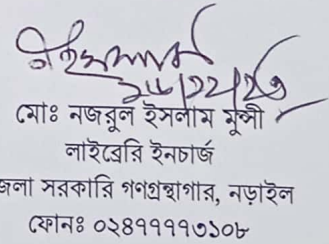 মোঃ নজরুল ইসলাম মুন্সী
লাইব্রেরি ইনচার্জ
জেলা সরকারি গণগ্রন্থাগার, নড়াইল
ফোনঃ ০২৪৭৭৭৭৩১০৮